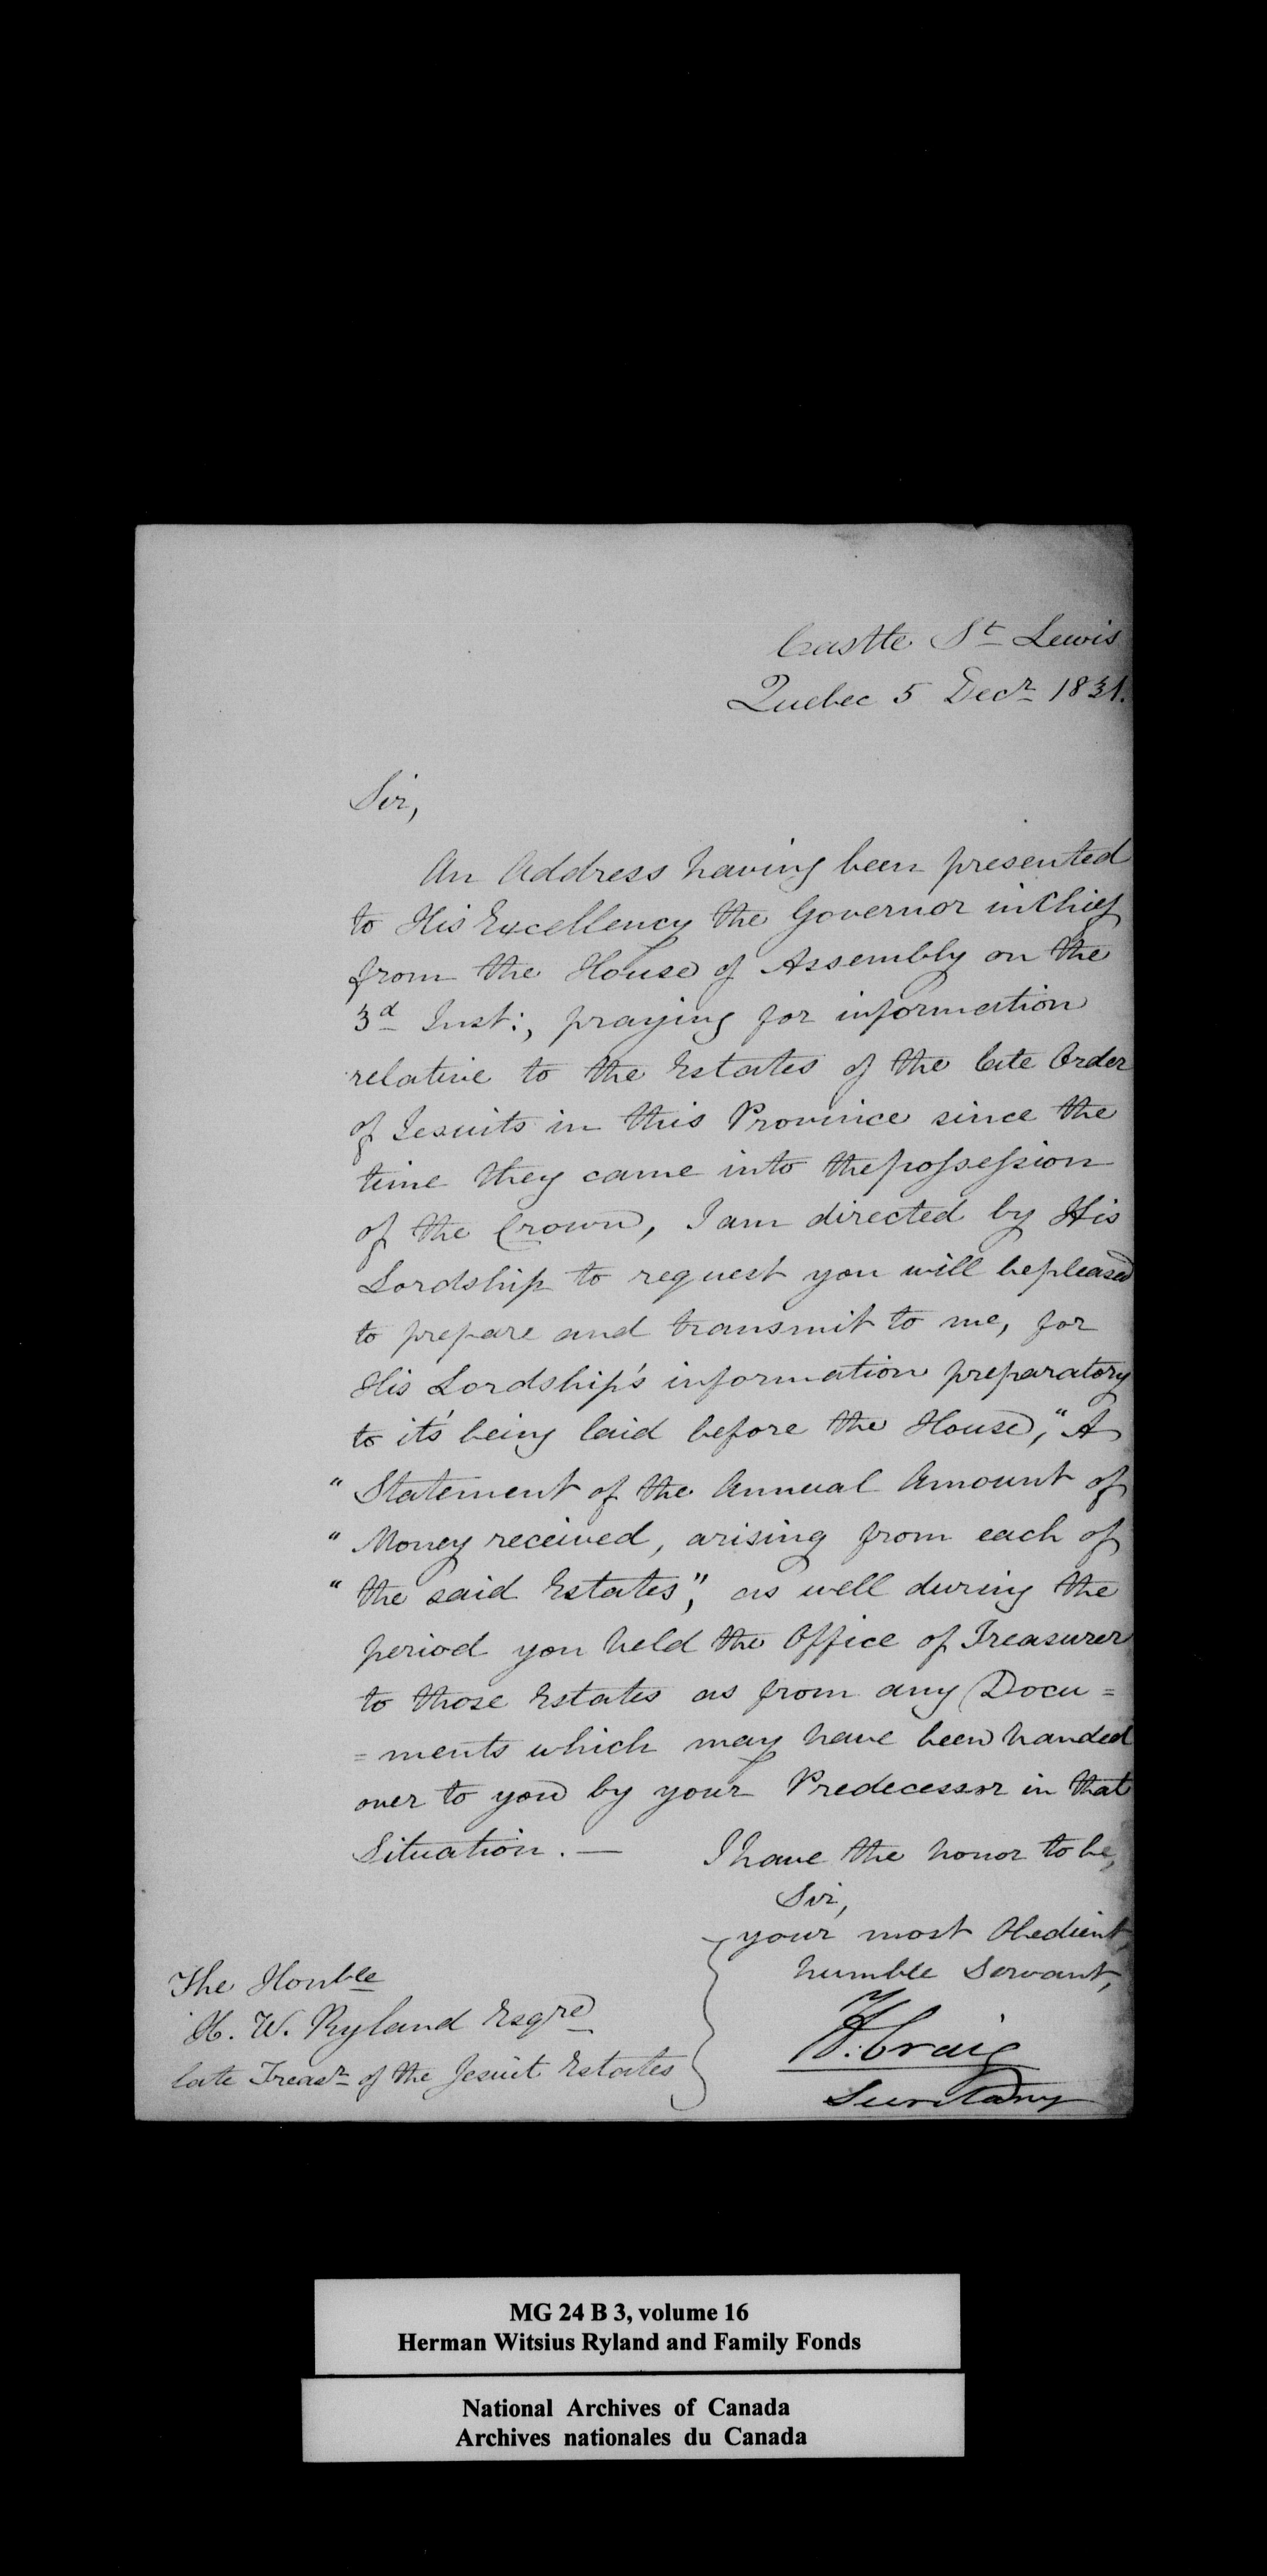 Castle St Lewis
Quebec 5 Decr 1831.
Sir,
An Address having been presented
to His Excellency the Governor in Chief
from the House of Assembly on the
3d Inst:, praying for information
relative to the Estates of the late Order
of Jesuits in this Province since the
time they came into the possession
of the Crown, I am directed by His
Lordship to request you will be pleased
to prepare and transmit to me, for
His Lordship's information preparatory
to it's being laid before the House, "A
" Statement of the Annual Amount of
" Money received, arising from each of
" the said Estates", as well during the
period you held the Office of Treasurer
to those Estates as from any Docu=
=ments which may have been handed
over to you by your Predecessor in that
Situation. —
I have the honor to be,
Sir,
your most Obedient,
humble Servant,
H. Craig
Secretary
The Honble
H. W. Ryland Esqre
late Treasr of the Jesuit Estates
MG 24 B 3, volume 16
Herman Witsius Ryland and Family Fonds
National Archives of Canada
Archives nationales du Canada